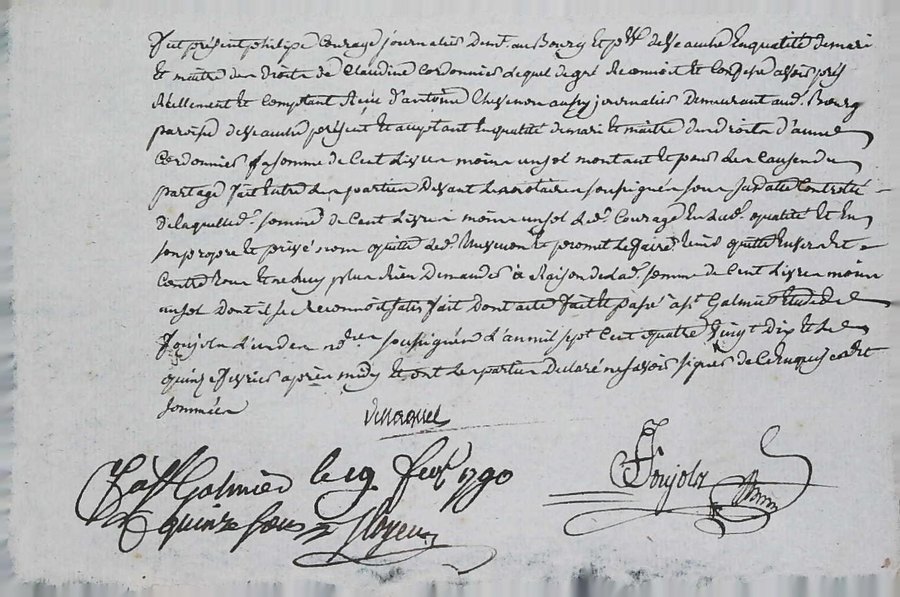 fut présent philipe Courage journalier demt. au Bourg et psse de Veauche En qualité de mari
Et maitre des droits de Claudine Cordonnier lequel de gré Reconnoit et Confesse avoir pris
Réellement et Comptant Reçu d'antoine aussy journalier Demeurant aud. Bourg
paroisse de Veauche présent Et aceptant En qualité de mari Et maitre des droits d'anne
Cordonnier la somme de Cent Livres moins un sol montant Et pour des Causes du
partage fait Entre les parties Devant les notaires soussignés sous sa date Controllé
de laquelle de. somme de Cent Livres moins un sol led. Courage En lad. qualité Et En
son propre et privé nom quitte led. Et promet le faire tenir quitte Envers Et
Contre tous Et ne luy plus Rien Demander à Raison de lad. somme de Cent Livres moins
un sol dont il se Reconnoit satisfait Dont acte fait Et passé a st. Galmier Etude de
Poujols L'un des nores soussignés L'an mil sept Cent quatre vingt Dix Et le
quinze fevrier après midy Et ont les parties Declaré ne savoir signer de Ce Enquis et
sommées

Cé a st Galmier le 19 fevr. 1790
quinze sous
Poujols